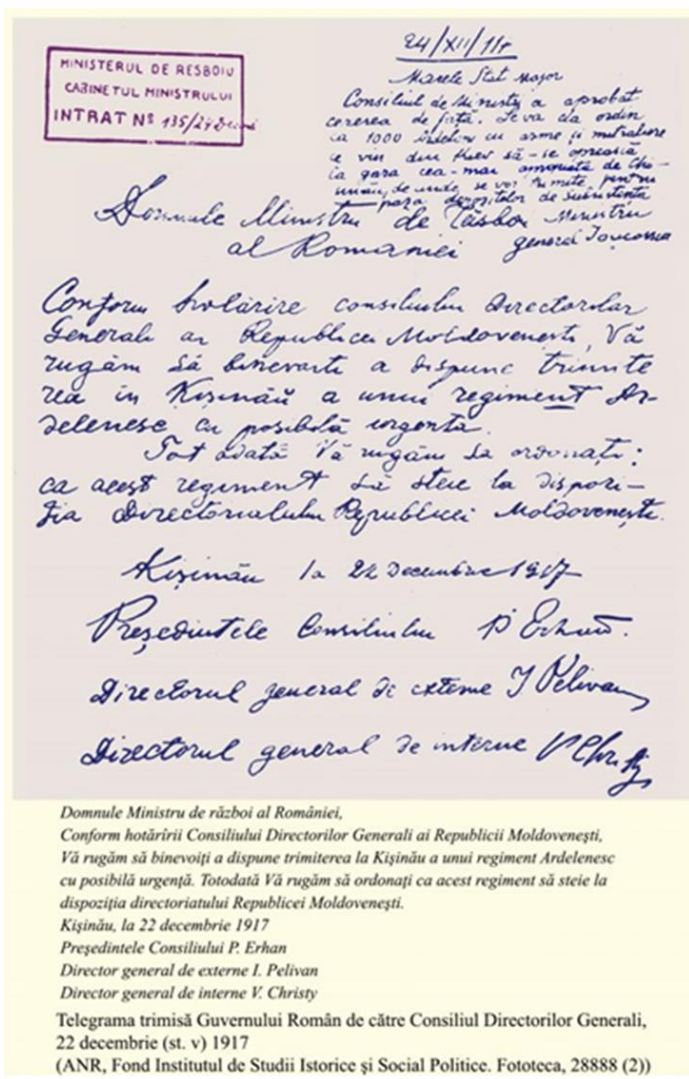 MINISTERUL DE RESBOIU
CABINETUL MINISTRULUI
INTRAT Nº 135/24 Decem
24/XII/917
Marele Stat Major
Consiliul de Miniștri a aprobat
cererea de față. Se va da ordin
ca 1000 Ardeleni cu arme și mitraliere
ce vin din Kiev să-se oprească
la gara cea-mai apropiată de Chi-
șinău, de unde se vor trimite pentru
paza depozitelor de subsistență
Ministru
general
Domnule Ministru de Răsboi
al Romaniei
Conform hotărîre consiliului Directorilor
Generali ai Republicei Moldovenești, Vă
rugăm să binevoiti a dispune trimite
rea in Kișinău a unui regiment Ar-
delenesc cu posibilă urgență.
Tot odată Vă rugăm sa ordonați:
ca acest regiment să steie la dispozi-
ția Directorialului Republicei Moldovenești.
Kișinău la 22 Decembrie 1917
Președintele Consiliului P Erhan.
Directorul general de externe I Pelivan
Directorul general de interne V Christy
Domnule Ministru de război al României,
Conform hotărîrii Consiliului Directorilor Generali ai Republicii Moldovenești,
Vă rugăm să binevoiți a dispune trimiterea la Kișinău a unui regiment Ardelenesc
cu posibilă urgență. Totodată Vă rugăm să ordonați ca acest regiment să steie la
dispoziția directoriatului Republicei Moldovenești.
Kișinău, la 22 decembrie 1917
Președintele Consiliului P. Erhan
Director general de externe I. Pelivan
Director general de interne V. Christy
Telegrama trimisă Guvernului Român de către Consiliul Directorilor Generali,
22 decembrie (st. v) 1917
(ANR, Fond Institutul de Studii Istorice și Social Politice. Fototeca, 28888 (2))